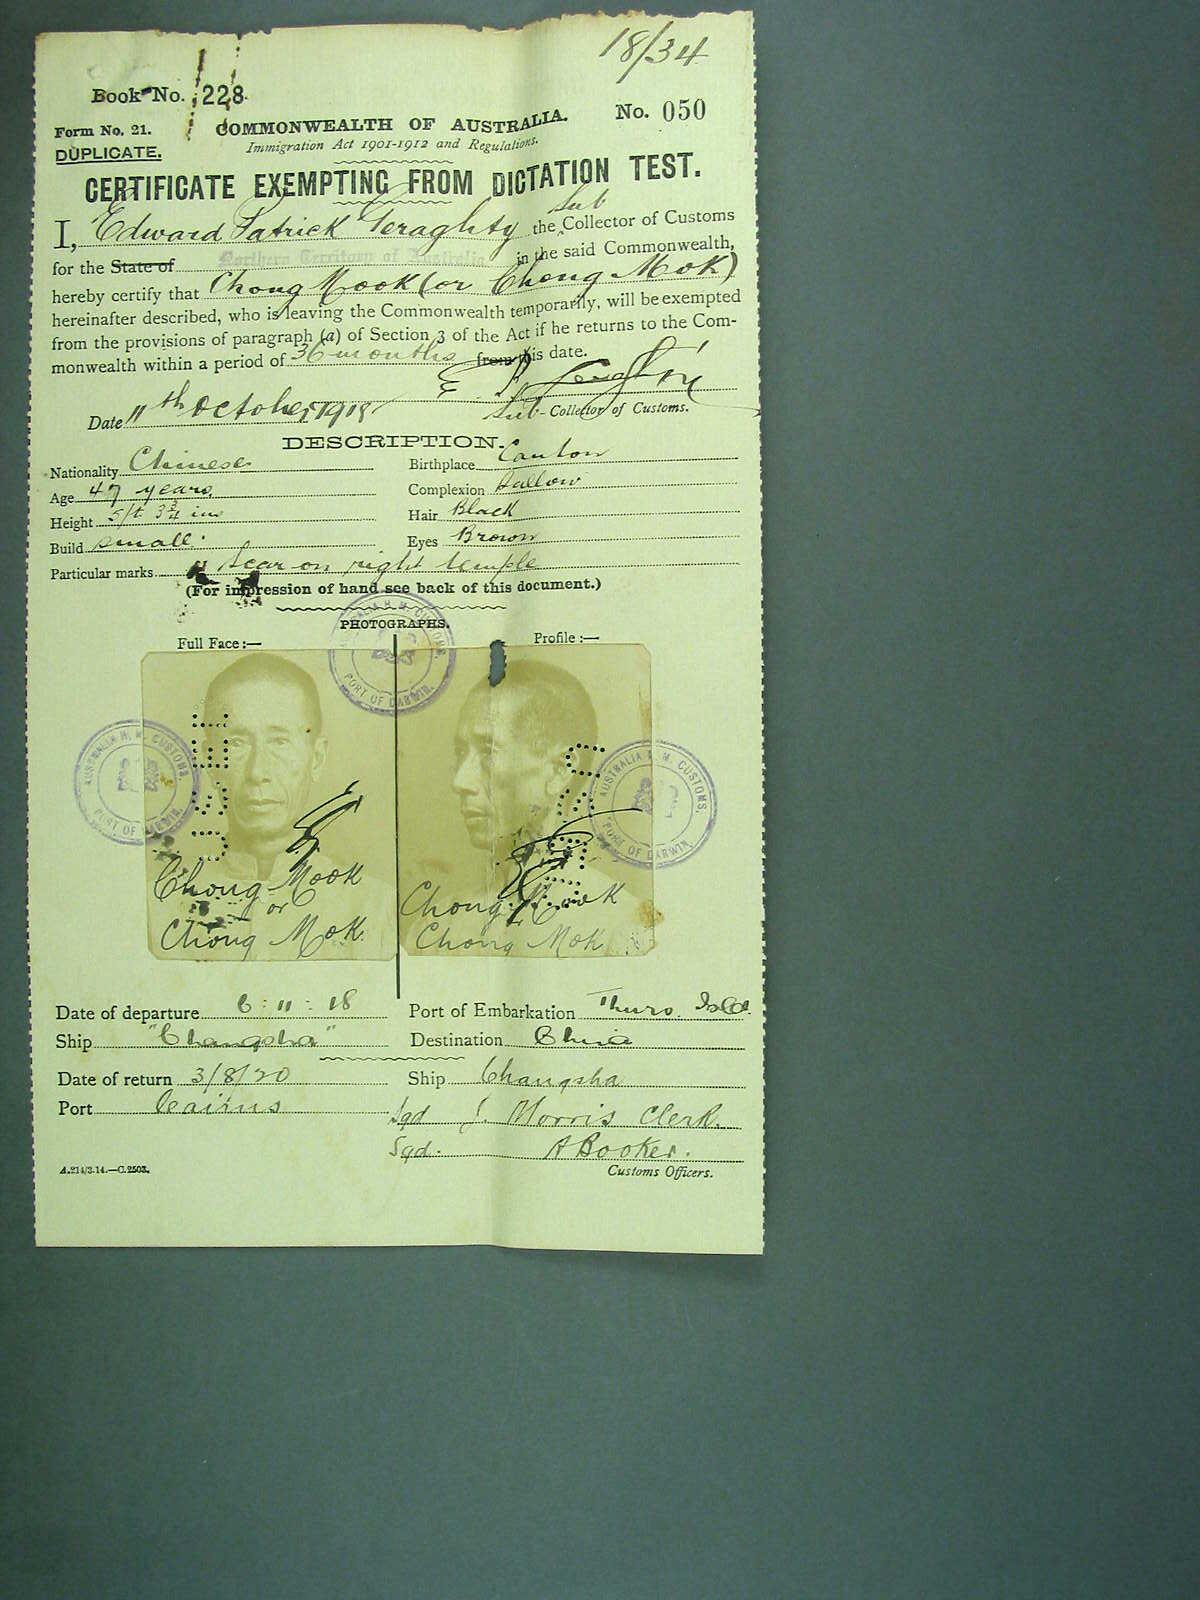 18/34
Book No. 228.
No. 050
Form No. 21.
COMMONWEALTH OF AUSTRALIA.
DUPLICATE.
Immigration Act 1901-1912 and Regulations.
CERTIFICATE EXEMPTING FROM DICTATION TEST.
I, Edward Patrick Geraghty the Sub Collector of Customs
for the State of Northern Territory of Australia in the said Commonwealth,
hereby certify that Chong Mook (or Chong Mok)
hereinafter described, who is leaving the Commonwealth temporarily, will be exempted
from the provisions of paragraph (a) of Section 3 of the Act if he returns to the Com-
monwealth within a period of 36 months from this date.
Date 11th October, 1918
Sub-Collector of Customs.
DESCRIPTION.
Nationality Chinese Birthplace Canton
Age 47 years Complexion Sallow
Height 5ft 3¾ ins Hair Black
Build small. Eyes Brown
Particular marks Scar on right temple
(For impression of hand see back of this document.)
PHOTOGRAPHS.
Full Face :— Profile :—
AUSTRALIA H. M. CUSTOMS.
PORT OF DARWIN.
AUSTRALIA H. M. CUSTOMS.
PORT OF DARWIN.
AUSTRALIA H. M. CUSTOMS.
PORT OF DARWIN.
Chong Mook
or
Chong Mok.
Chong Mook
Chong Mok
Date of departure 6 : 11 : 18 Port of Embarkation Thurs. Isld.
Ship "Changsha" Destination China
Date of return 3/8/20 Ship Changsha
Port Cairns Sgd J. Morris Clerk.
Sgd. A Booker.
A.214/3.14.—C.2503. Customs Officers.